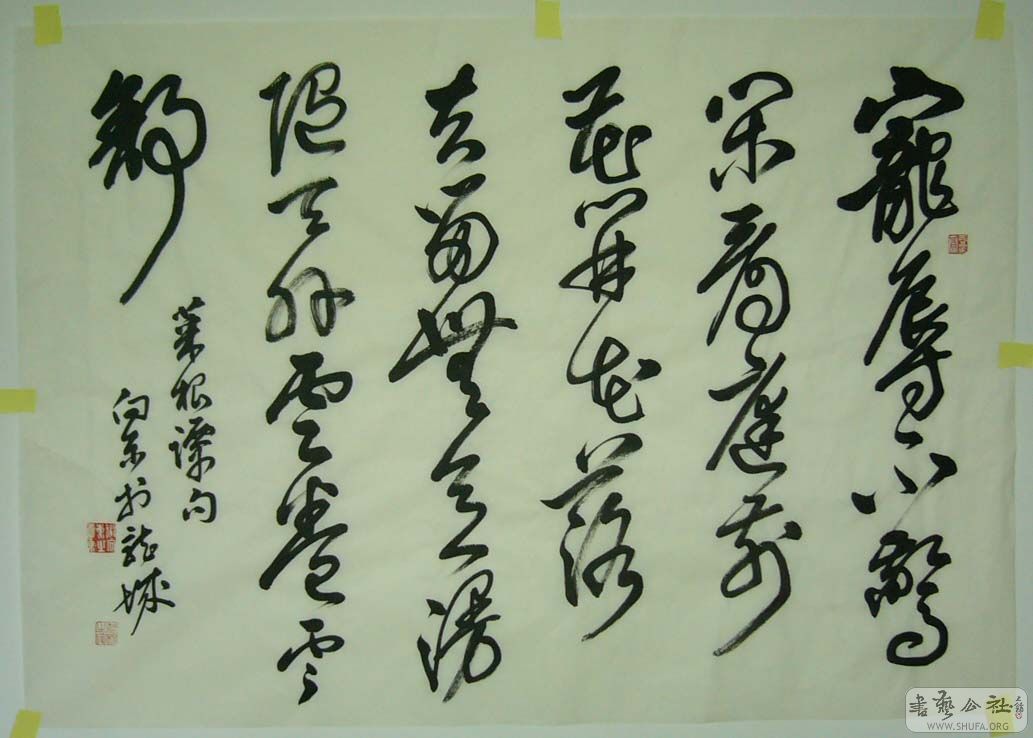 寵辱不驚
閑看庭前
花開花落
去留無意漫
隨天外雲卷雲
舒
菜根譚句
向東於龍城
書藝公社
WWW.SHUFA.ORG